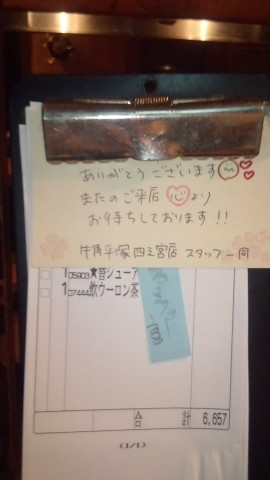 ありがとうございます
またのご来店 心 より
お待ちしております!!
牛角平塚四之宮店 スタッフ一同
1
1 飲ウーロン茶
合 計 6,657
(1/1)